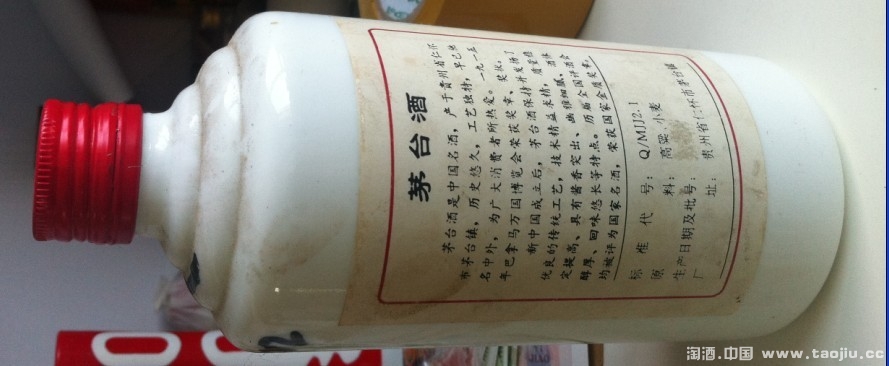 茅台酒
茅台酒是中国名酒，产于贵州省仁怀
市茅台镇，历史悠久，工艺独特，早已驰
名中外，为广大消费者所热爱。一九一五
年巴拿马万国博览会荣获奖章、奖状。
新中国成立后，茅台酒保持并发扬了
优良的传统工艺，技术精益求精，质量稳
定提高、具有酱香突出、幽雅细腻、酒体
醇厚、回味悠长等特点。历届全国评酒会
均被评为国家名酒，荣获国家金质奖章。
标准代号：Q/MJJ2.1
原料：高粱、小麦
生产日期及批号：
厂址：贵州省仁怀市茅台镇
淘酒.中国 www.taojiu.cc